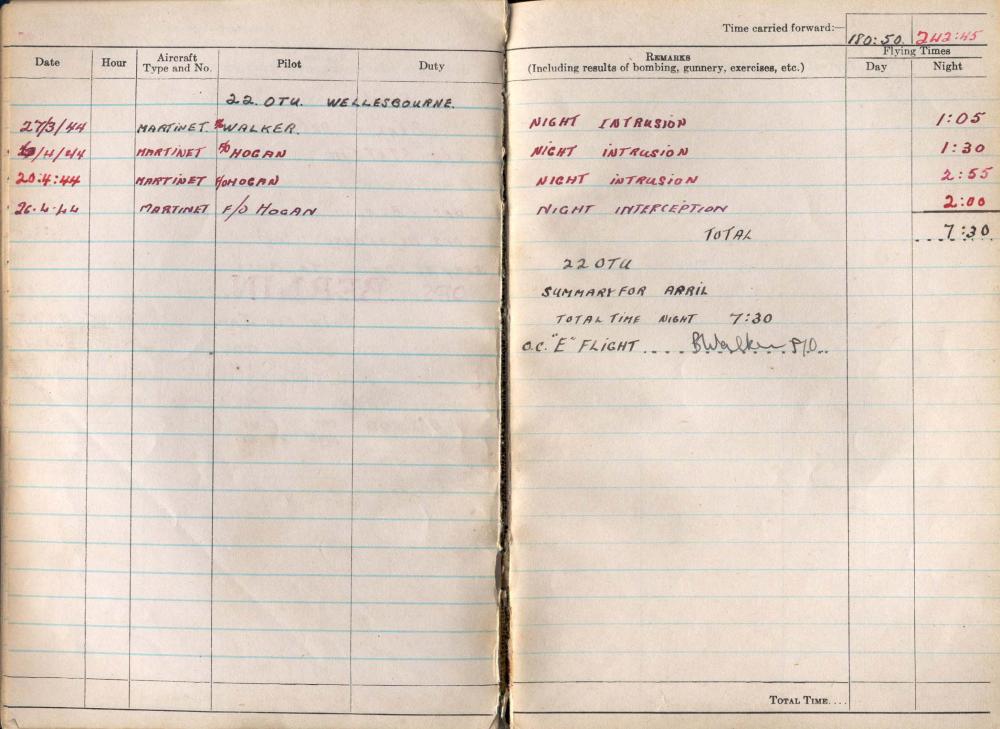 Time carried forward:— 180:50 242:45
Date Hour Aircraft Type and No. Pilot Duty REMARKS (Including results of bombing, gunnery, exercises, etc.) Flying Times Day Night
22. OTU. WELLESBOURNE.
27/3/44 MARTINET. WALKER. NIGHT INTRUSION 1:05
/4/44 MARTINET F/O HOGAN NIGHT INTRUSION 1:30
20.4:44 MARTINET F/O HOGAN NIGHT INTRUSION 2:55
26.4.44 MARTINET F/O HOGAN NIGHT INTERCEPTION 2:00
TOTAL 7:30
22 OTU
SUMMARY FOR APRIL
TOTAL TIME NIGHT 7:30
O.C. "E" FLIGHT .... BWalker F/O..
TOTAL TIME....